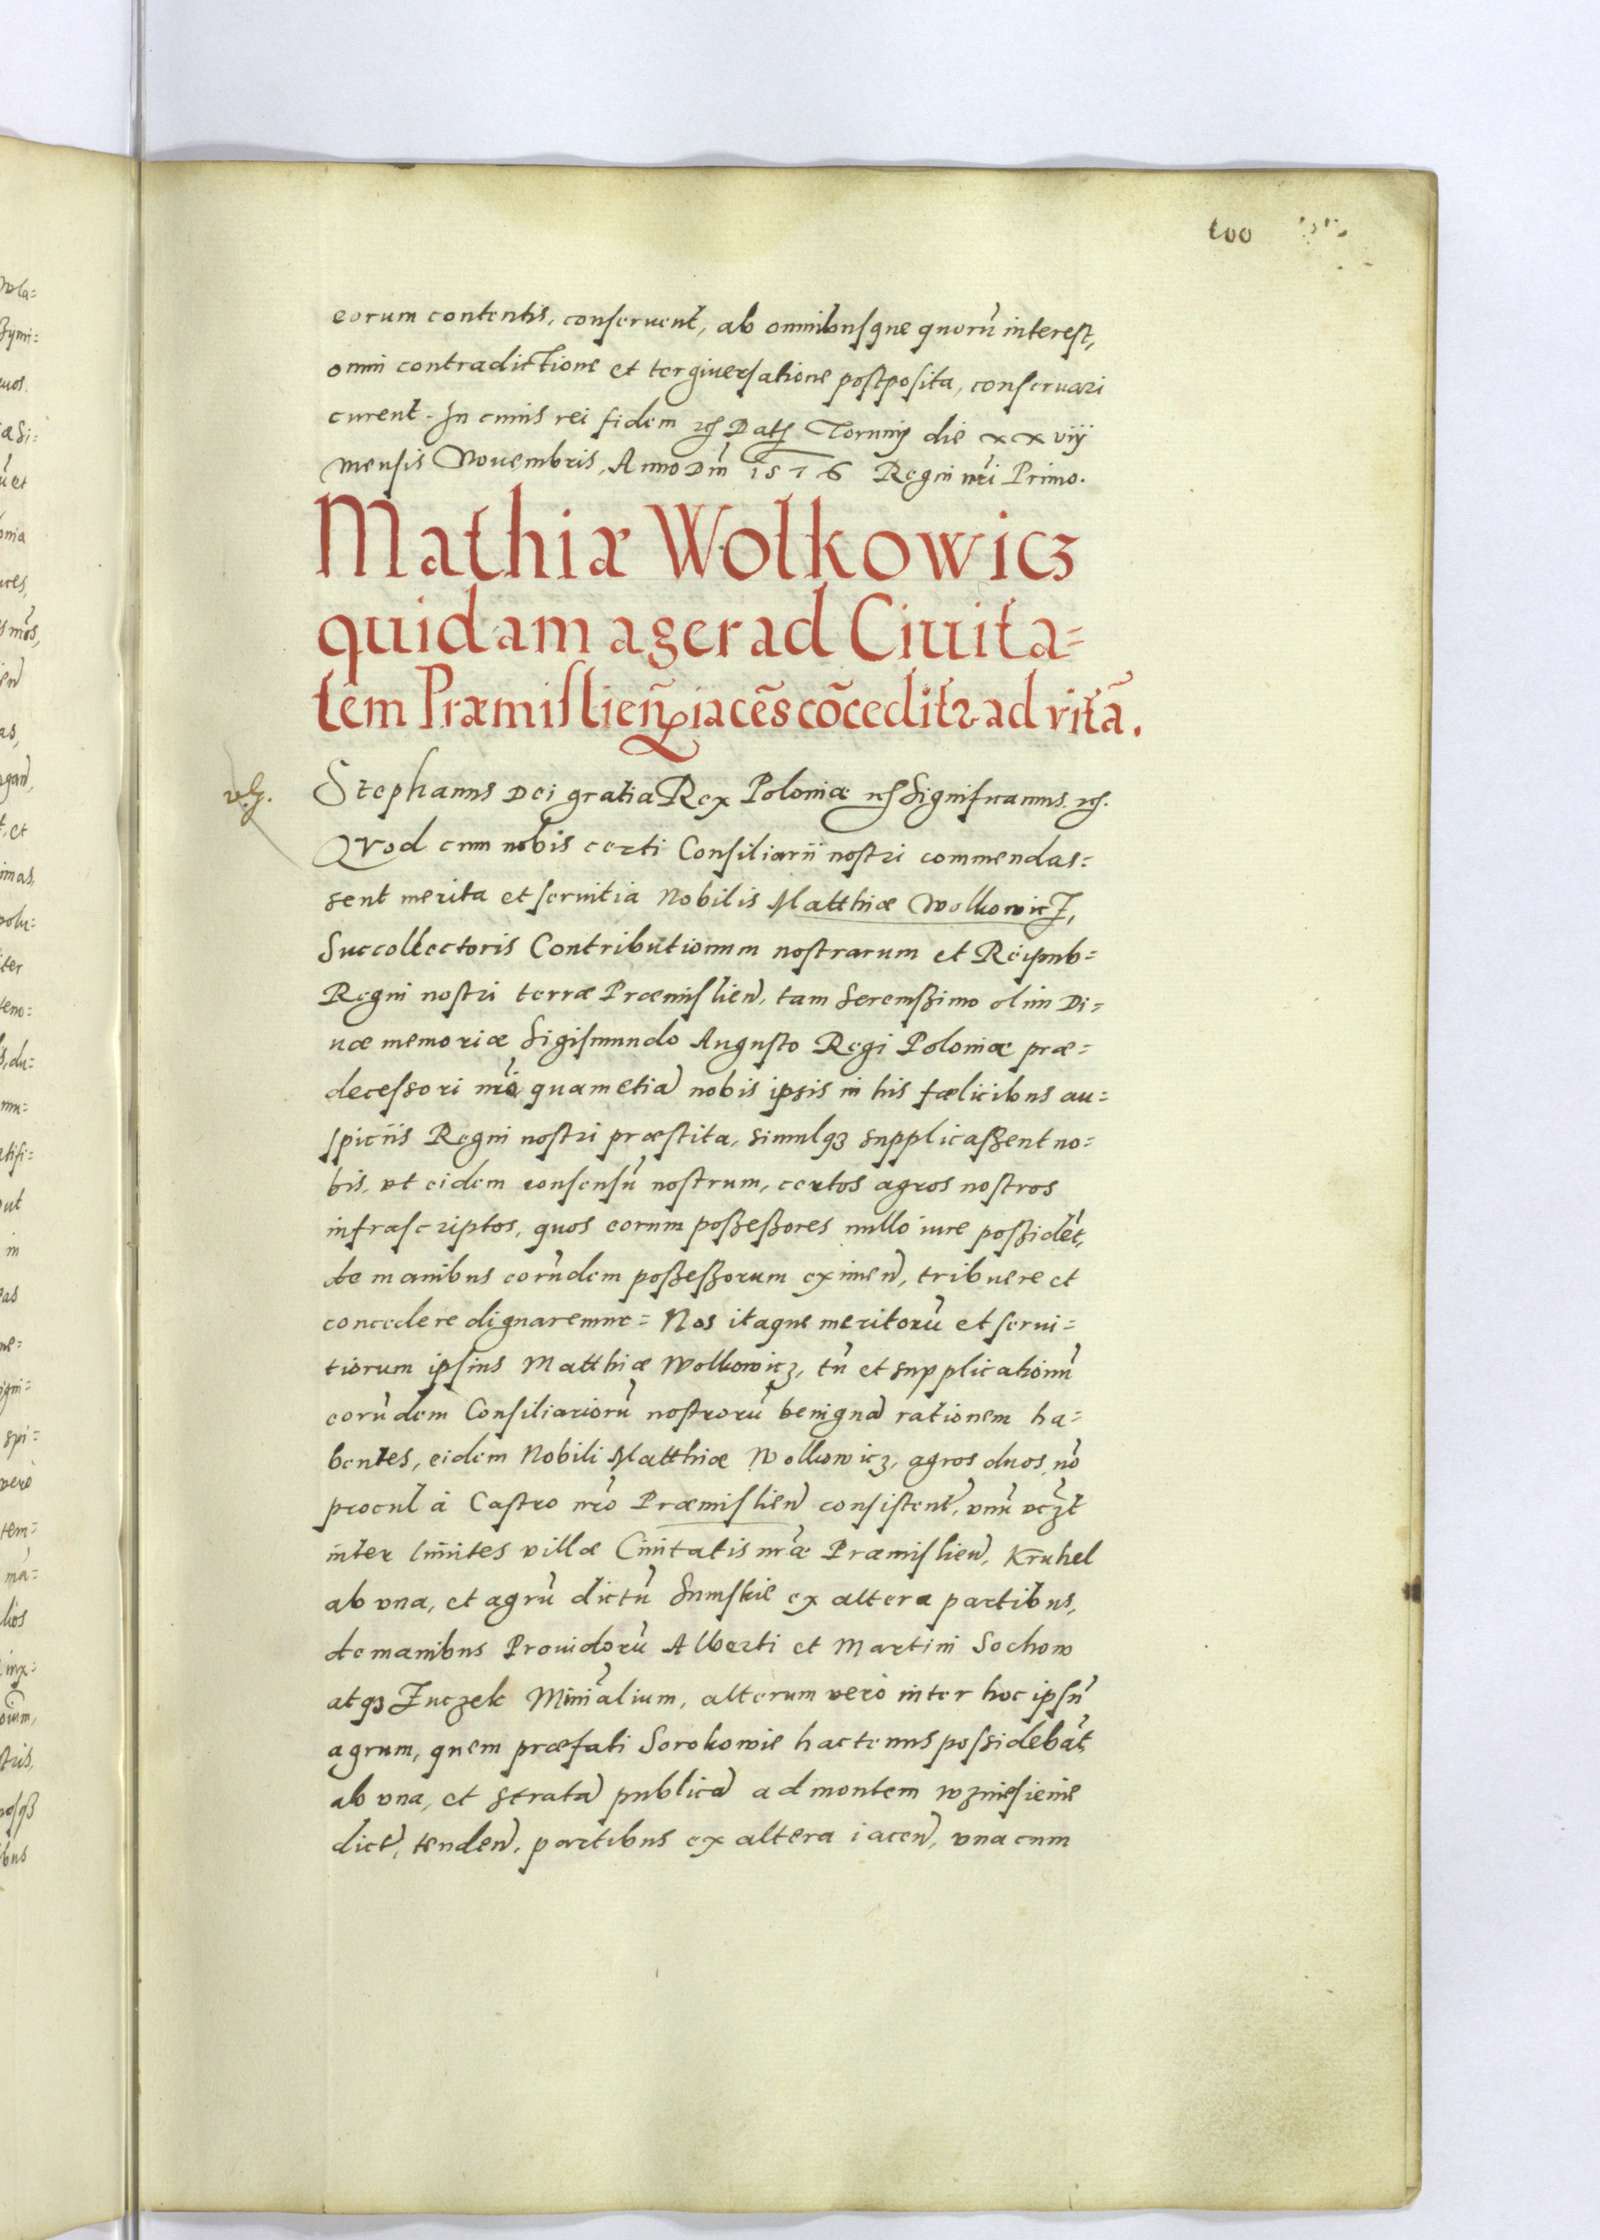 100
eorum contentis, conseruent, ab omnibusque quorũ interest,
omni contradictione et tergiuersatione postposita, conseruari
curent. In cuius rei fidem etc Datum Torunij die xx viij
mensis Nouembris, Anno Dni 1576 Regni nri Primo.
Mathiæ Wolkowicz
quidam ager ad Ciuita=
tem Præmislien̄ iacẽs cõcedit2 ad vitã.
Stephanus Dei gratia Rex Poloniæ etc Significamus etc.
Quod cum nobis certi Consiliarii nostri commendas=
sent merita et seruitia Nobilis Matthiæ Wolkowicz,
Succollectoris Contributionum nostrarum et Reipub=
Regni nostri terræ Præmislien, tam Serenißimo olim Di=
uæ memoriæ Sigismundo Augusto Regi Poloniæ præ=
decessori nr̃o quam etiã nobis ipsis in his fælicibus au=
spiciis Regni nostri præstita, simulqꝫ supplicaßent no=
bis, vt eidem consensũ nostrum, certos agros nostros
infrascriptos, quos eorum poßeßores nullo iure poßidẽt,
de manibus eorũdem poßeßorum eximen, tribuere et
concedere dignaremur= Nos itaque meritorũ et serui=
tiorum ipsius Matthiæ Wolkowicz, tũ et supplicationũ
eorũdem Consiliariorũ nostrorũ benignã rationem ha=
bentes, eidem Nobili Matthiæ Wolkowicz, agros duos nõ
procul à Castro nr̃o Præmislien consistent, vnũ vcꝫt
inter limites villæ Ciuitatis nr̃æ Præmislien, Kruhel
ab vna, et agrũ dictũ Sumskie ex altera partibus,
de manibus Prouidorũ Alberti et Martini Sochow
atqꝫ Zuczek Minĩalium, alterum verò inter hoc ipsũ
agrum, quem præfati Sorokowie hactenus poßidebãt,
ab vna, et stratã publicã ad montem wzniesienie
dict, tenden, partibus ex altera iacen, vna cum